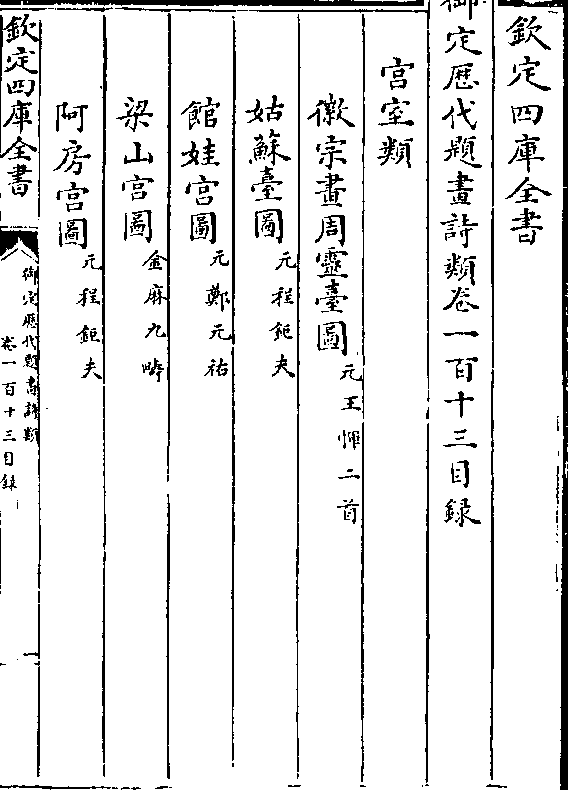 欽定四庫全書
御定歷代題畫詩類卷一百十三目録
宫室類
徽宗畫周靈臺圖 元王惲二首
姑蘇臺圖 元程鉅夫
館娃宫圖 元鄭元祐
梁山宫圖 金麻九疇
阿房宫圖 元程鉅夫
欽定四庫全書
御定歷代題畫詩類
卷一百十三目録
一